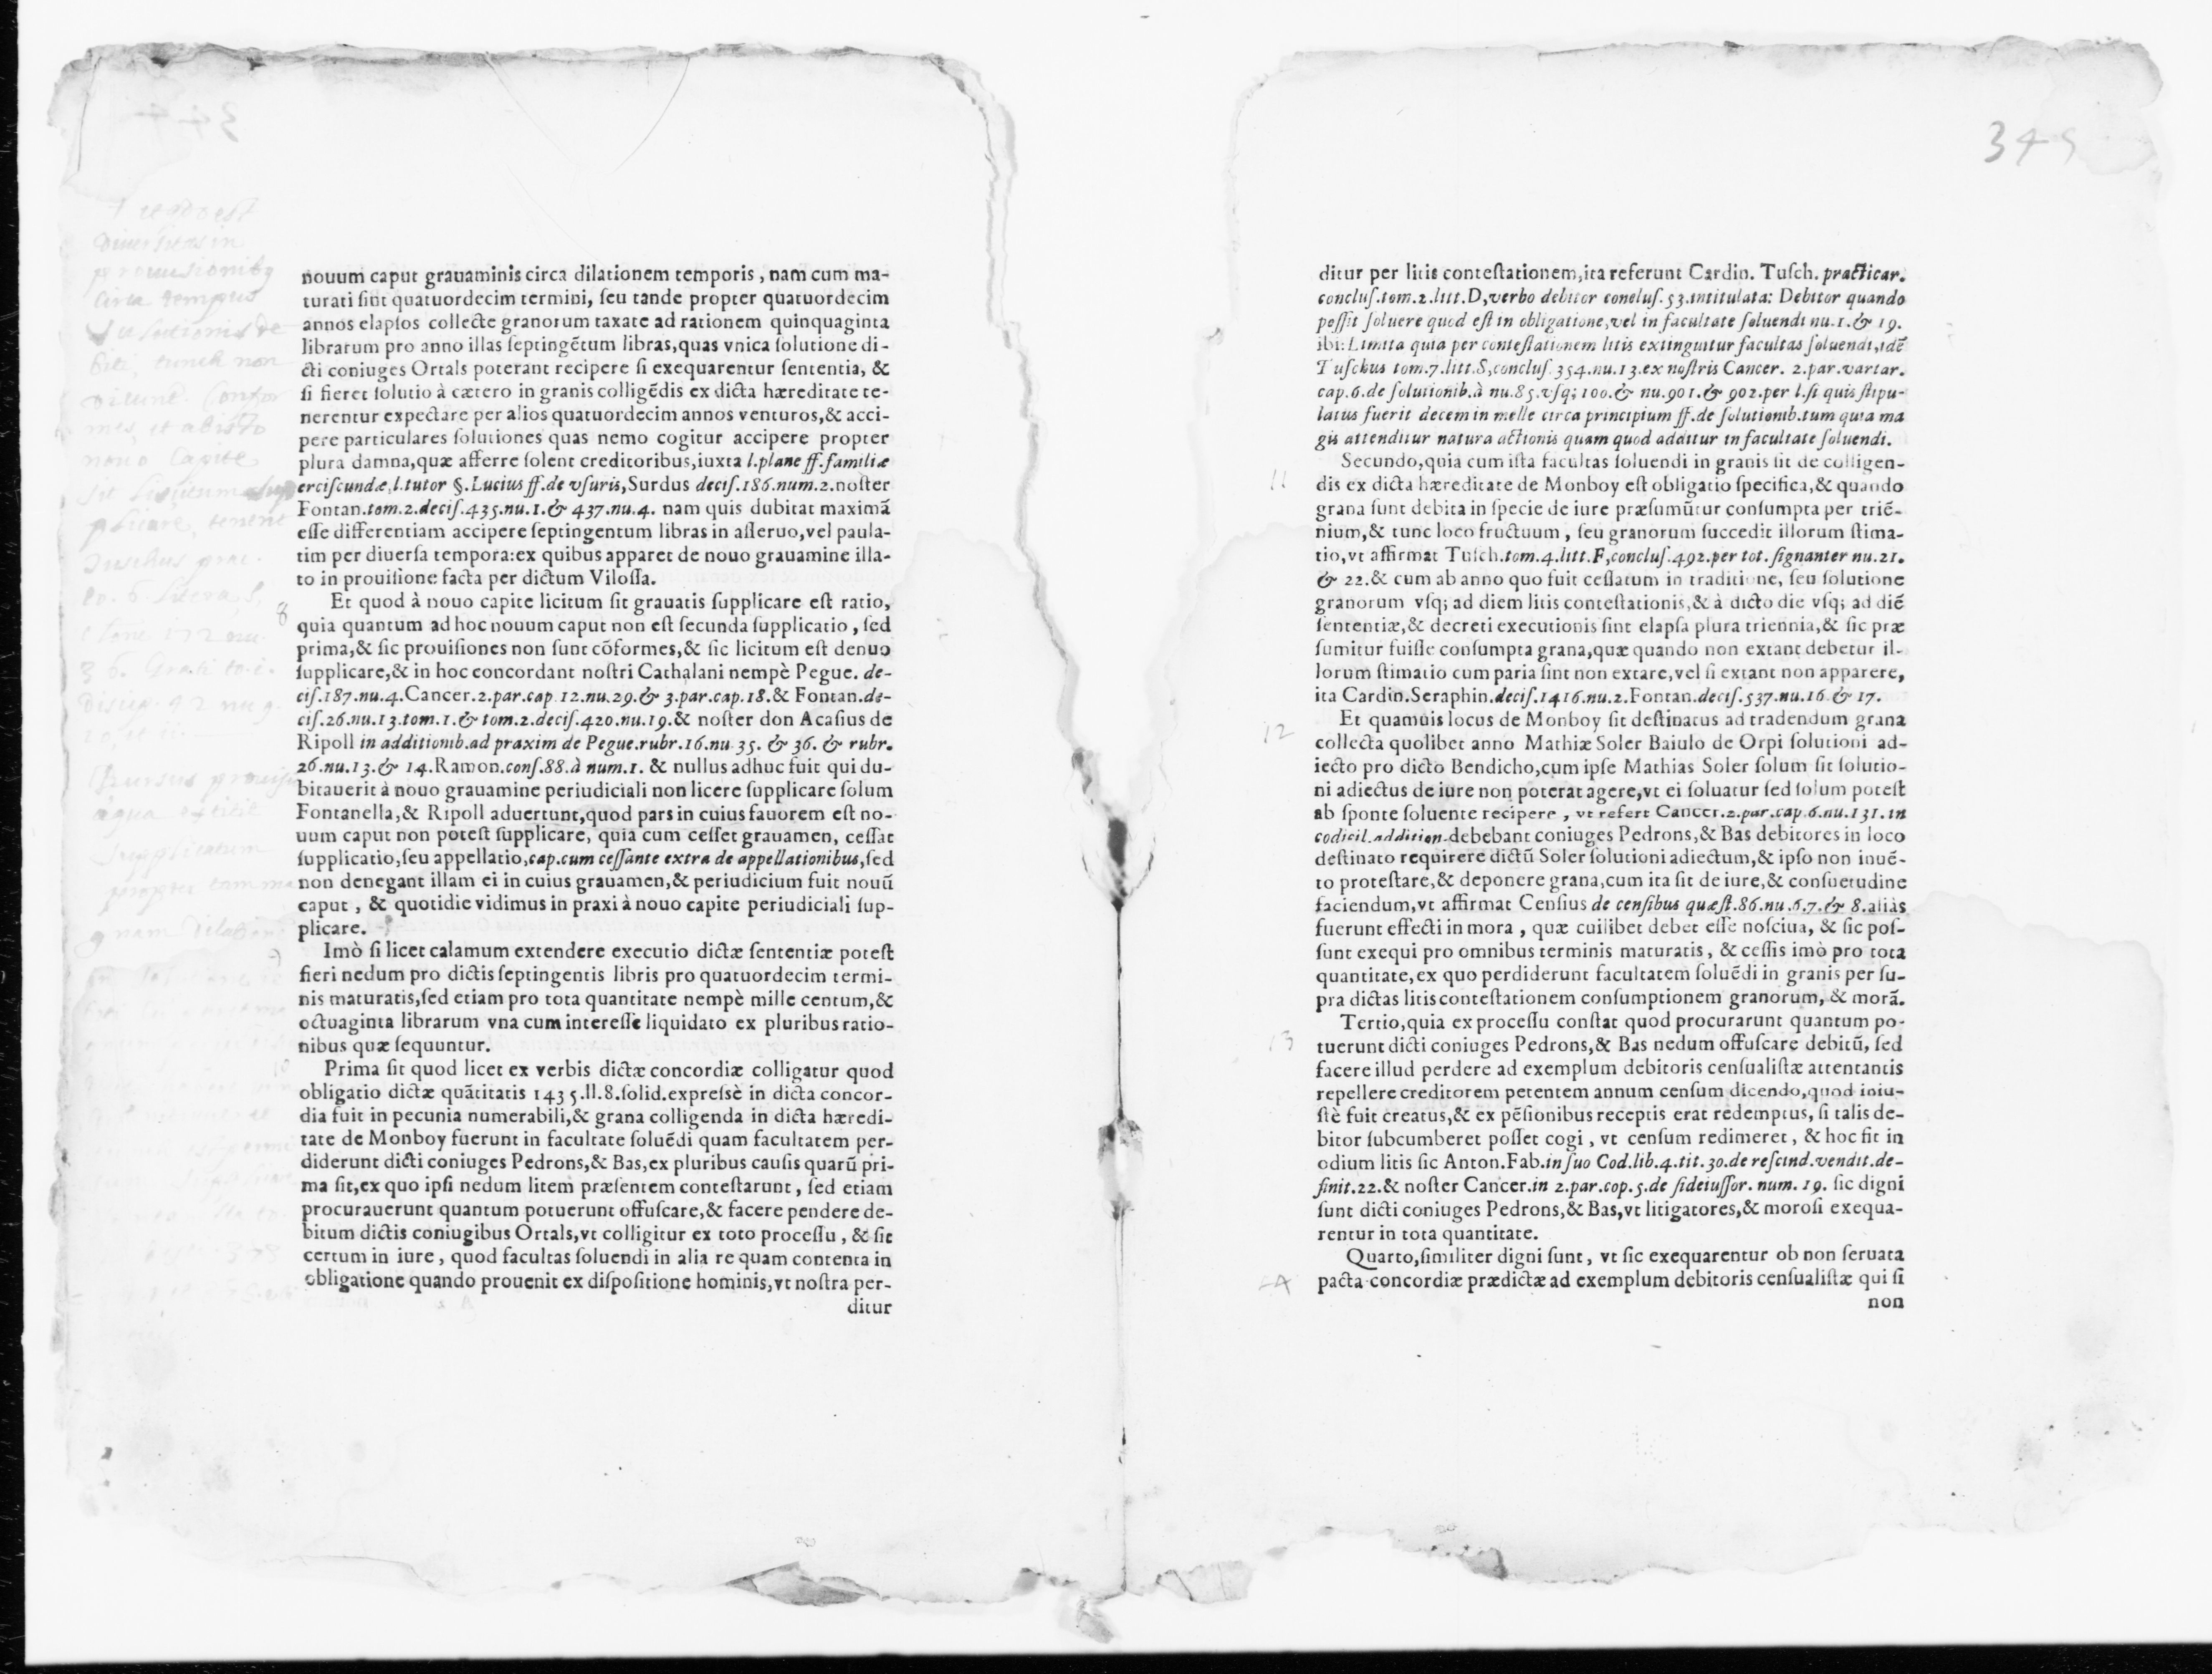 nouum caput grauaminis circa dilationem temporis, nam cum ma-
turati ſint quatuordecim termini, ſeu tande propter quatuordecim
annos elapſos collecte granorum taxate ad rationem quinquaginta
librarum pro anno illas ſeptingẽtum libras, quas vnica ſolutione di-
cti coniuges Ortals poterant recipere ſi exequarentur ſententia, &
ſi fieret ſolutio à cætero in granis colligẽdis ex dicta hæreditate te-
nerentur expectare per alios quatuordecim annos venturos, & acci-
pere particulares ſolutiones quas nemo cogitur accipere propter
plura damna, quæ afferre ſolent creditoribus, iuxta l. plane ff. familiæ
erciſcundæ, l. tutor §. Lucius ff. de vſuris, Surdus deciſ. 186. num. 2. noſter
Fontan. tom. 2. deciſ. 435. nu. 1. & 437. nu. 4. nam quis dubitat maximã
eſſe differentiam accipere ſeptingentum libras in aſſeruo, vel paula-
tim per diuerſa tempora: ex quibus apparet de nouo grauamine illa-
to in prouiſione facta per dictum Viloſſa.
8
Et quod à nouo capite licitum ſit grauatis ſupplicare eſt ratio,
quia quantum ad hoc nouum caput non eſt ſecunda ſupplicatio, ſed
prima, & ſic prouiſiones non ſunt cõformes, & ſic licitum eſt denuo
ſupplicare, & in hoc concordant noſtri Cathalani nempè Pegue. de-
ciſ. 187. nu. 4. Cancer. 2. par. cap. 12. nu. 29. & 3. par. cap. 18. & Fontan. de-
ciſ. 26. nu. 13. tom. 1. & tom. 2. deciſ. 420. nu. 19. & noſter don Acaſius de
Ripoll in additionib. ad praxim de Pegue. rubr. 16. nu. 35. & 36. & rubr.
26. nu. 13. & 14. Ramon. conſ. 88. à num. 1. & nullus adhuc fuit qui du-
bitauerit à nouo grauamine periudiciali non licere ſupplicare ſolum
Fontanella, & Ripoll aduertunt, quod pars in cuius fauorem eſt no-
uum caput non poteſt ſupplicare, quia cum ceſſet grauamen, ceſſat
ſupplicatio, ſeu appellatio, cap. cum ceſſante extra de appellationibus, ſed
non denegant illam ei in cuius grauamen, & periudicium fuit nouũ
caput, & quotidie vidimus in praxi à nouo capite periudiciali ſup-
plicare.
Imò ſi licet calamum extendere executio dictæ ſententiæ poteſt
fieri nedum pro dictis ſeptingentis libris pro quatuordecim termi-
nis maturatis, ſed etiam pro tota quantitate nempè mille centum, &
octuaginta librarum vna cum intereſſe liquidato ex pluribus ratio-
nibus quæ ſequuntur.
Prima ſit quod licet ex verbis dictæ concordiæ colligatur quod
obligatio dictæ quãtitatis 1435. ll. 8. ſolid. expreſsè in dicta concor-
dia fuit in pecunia numerabili, & grana colligenda in dicta hæredi-
tate de Monboy fuerunt in facultate ſoluẽdi quam facultatem per-
diderunt dicti coniuges Pedrons, & Bas, ex pluribus cauſis quarũ pri-
ma ſit, ex quo ipſi nedum litem præſentem conteſtarunt, ſed etiam
procurauerunt quantum potuerunt offuſcare, & facere pendere de-
bitum dictis coniugibus Ortals, vt colligitur ex toto proceſſu, & ſit
certum in iure, quod facultas ſoluendi in alia re quam contenta in
obligatione quando prouenit ex diſpoſitione hominis, vt noſtra per-
ditur
345
ditur per litis conteſtationem, ita referunt Cardin. Tuſch. practicar.
concluſ. tom. 2. litt. D, verbo debitor concluſ. 53. intitulata: Debitor quando
poſſit ſoluere quod eſt in obligatione, vel in facultate ſoluendi nu. 1. & 19.
ibi: Limita quia per conteſtationem litis extinguitur facultas ſoluendi, idẽ
Tuſchus tom. 7. litt. S, concluſ. 354. nu. 13. ex noſtris Cancer. 2. par. variar.
cap. 6. de ſolutionib. à nu. 85. vſq; 100. & nu. 901. & 902. per l. ſi quis ſtipu-
latus fuerit decem in melle circa principium ff. de ſolutionib. tum quia ma
gis attenditur natura actionis quam quod additur in facultate ſoluendi.
11
Secundo, quia cum iſta facultas ſoluendi in granis ſit de colligen-
dis ex dicta hæreditate de Monboy eſt obligatio ſpecifica, & quando
grana ſunt debita in ſpecie de iure præſumũtur conſumpta per triẽ-
nium, & tunc loco fructuum, ſeu granorum ſuccedit illorum ſtima-
tio, vt affirmat Tuſch. tom. 4. litt. F, concluſ. 492. per tot. ſignanter nu. 21.
& 22. & cum ab anno quo fuit ceſſatum in traditione, ſeu ſolutione
granorum vſq; ad diem litis conteſtationis, & à dicto die vſq; ad diẽ
ſententiæ, & decreti executionis ſint elapſa plura triennia, & ſic præ
ſumitur fuiſſe conſumpta grana, quæ quando non extant debetur il-
lorum ſtimatio cum paria ſint non extare, vel ſi extant non apparere,
ita Cardin. Seraphin. deciſ. 1416. nu. 2. Fontan. deciſ. 537. nu. 16. & 17.
12
Et quamuis locus de Monboy ſit deſtinatus ad tradendum grana
collecta quolibet anno Mathiæ Soler Baiulo de Orpi ſolutioni ad-
iecto pro dicto Bendicho, cum ipſe Mathias Soler ſolum ſit ſolutio-
ni adiectus de iure non poterat agere, vt ei ſoluatur ſed ſolum poteſt
ab ſponte ſoluente recipere, vt refert Cancer. 2. par. cap. 6. nu. 131. in
codicil. addition. debebant coniuges Pedrons, & Bas debitores in loco
deſtinato requirere dictũ Soler ſolutioni adiectum, & ipſo non inuẽ-
to proteſtare, & deponere grana, cum ita ſit de iure, & conſuetudine
faciendum, vt affirmat Cenſius de cenſibus quæſt. 86. nu. 6. 7. & 8. aliàs
fuerunt effecti in mora, quæ cuilibet debet eſſe noſciua, & ſic poſ-
ſunt exequi pro omnibus terminis maturatis, & ceſſis imò pro tota
quantitate, ex quo perdiderunt facultatem ſoluẽdi in granis per ſu-
pra dictas litis conteſtationem conſumptionem granorum, & morã.
13
Tertio, quia ex proceſſu conſtat quod procurarunt quantum po-
tuerunt dicti coniuges Pedrons, & Bas nedum offuſcare debitũ, ſed
facere illud perdere ad exemplum debitoris cenſualiſtæ attentantis
repellere creditorem petentem annum cenſum dicendo, quod iniu-
ſtè fuit creatus, & ex pẽſionibus receptis erat redemptus, ſi talis de-
bitor ſubcumberet poſſet cogi, vt cenſum redimeret, & hoc fit in
odium litis ſic Anton. Fab. in ſuo Cod. lib. 4. tit. 30. de reſcind. vendit. de-
finit. 22. & noſter Cancer. in 2. par. cop. 5. de fideiuſſor. num. 19. ſic digni
ſunt dicti coniuges Pedrons, & Bas, vt litigatores, & moroſi exequa-
rentur in tota quantitate.
Quarto, ſimiliter digni ſunt, vt ſic exequarentur ob non ſeruata
pacta concordiæ prædictæ ad exemplum debitoris cenſualiſtæ qui ſi
non